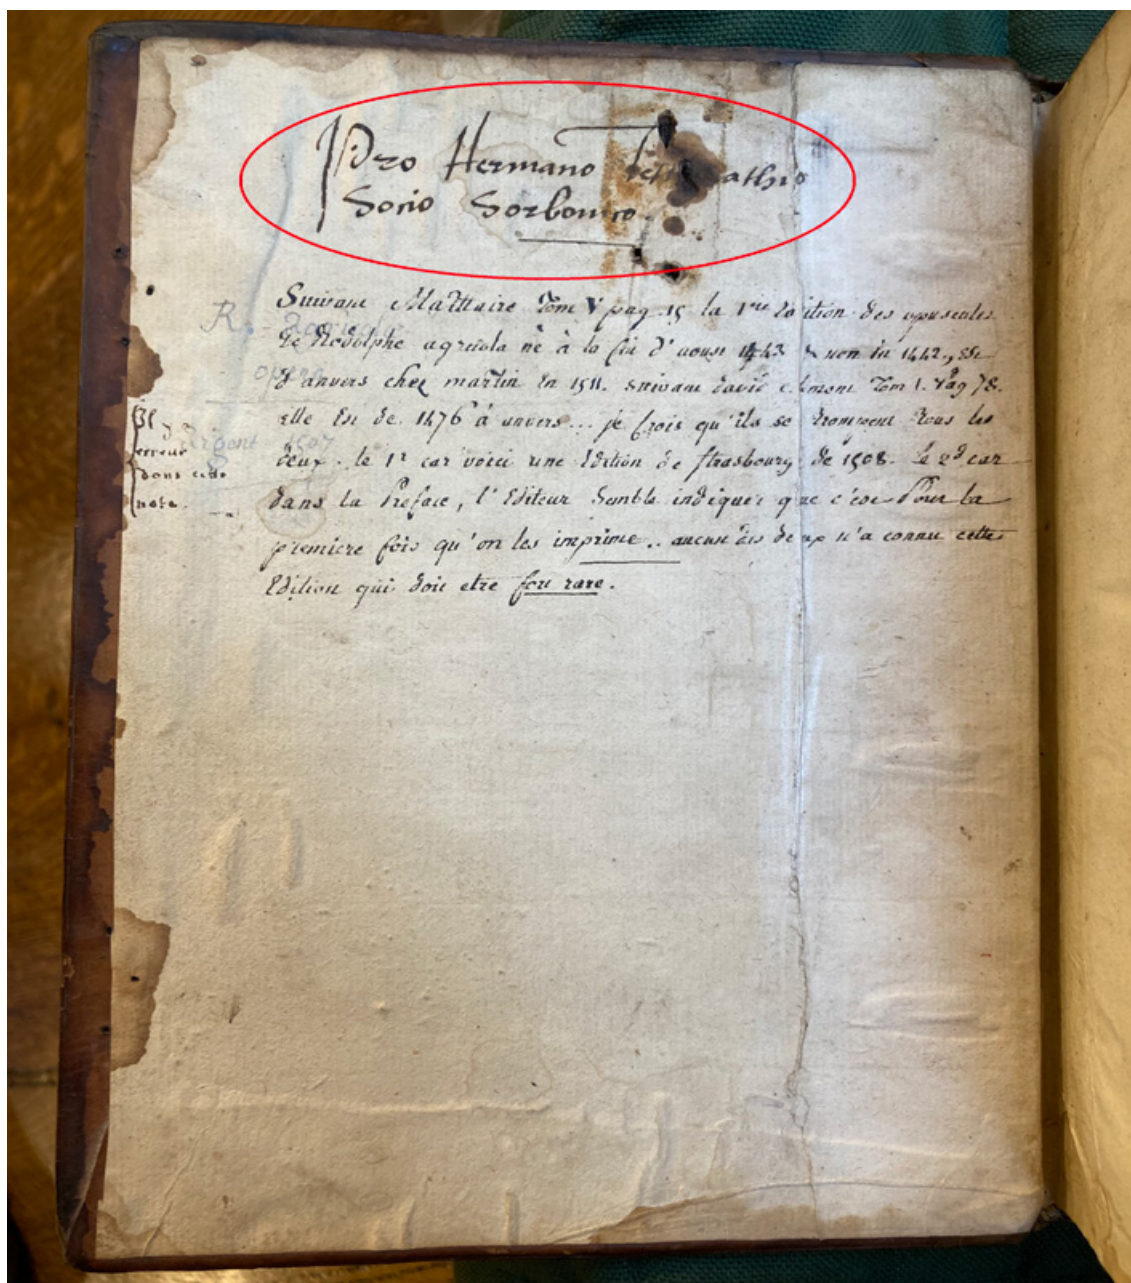 Pro Hermano
Socio Sorbonico.
Suivant Maittaire Tom V pag 15 la 1re Edition des opuscules
de Rodolphe agricola né à la fin d'aoust 1443 & non in 1442, est
d'anvers chez martin En 1511. suivant david Clement Tom 1. pag 78.
elle Est de 1476 à anvers... je crois qu'ils se trompent tous les
deux. le 1r car voici une Edition de strasbourg de 1508. le 2d car
dans la Preface, l'Editeur Semble indiquer que c'est Pour la
premiere fois qu'on les imprime.. aucun des deux n'a connu cette
Edition qui doit etre fort rare.
Il y a
erreur
dans cette
note.
R.
opera
1507